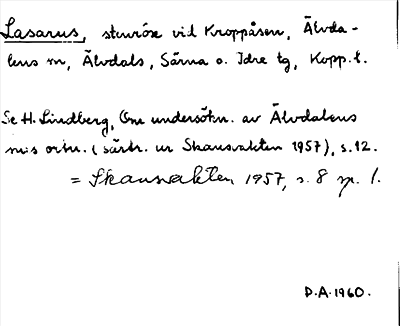 Lasarus, stenröse vid Kroppåsen, Älvda-
lens sn, Älvdals, Särna o. Idre tg, Kopp. l.
Se H. Lindberg, Om undersökn. av Älvdalens
sns ortn. (särtr. ur Skansvakten 1957), s. 12.
= Skansvakten 1957, s. 8 sp. 1.
D.A. 1960.